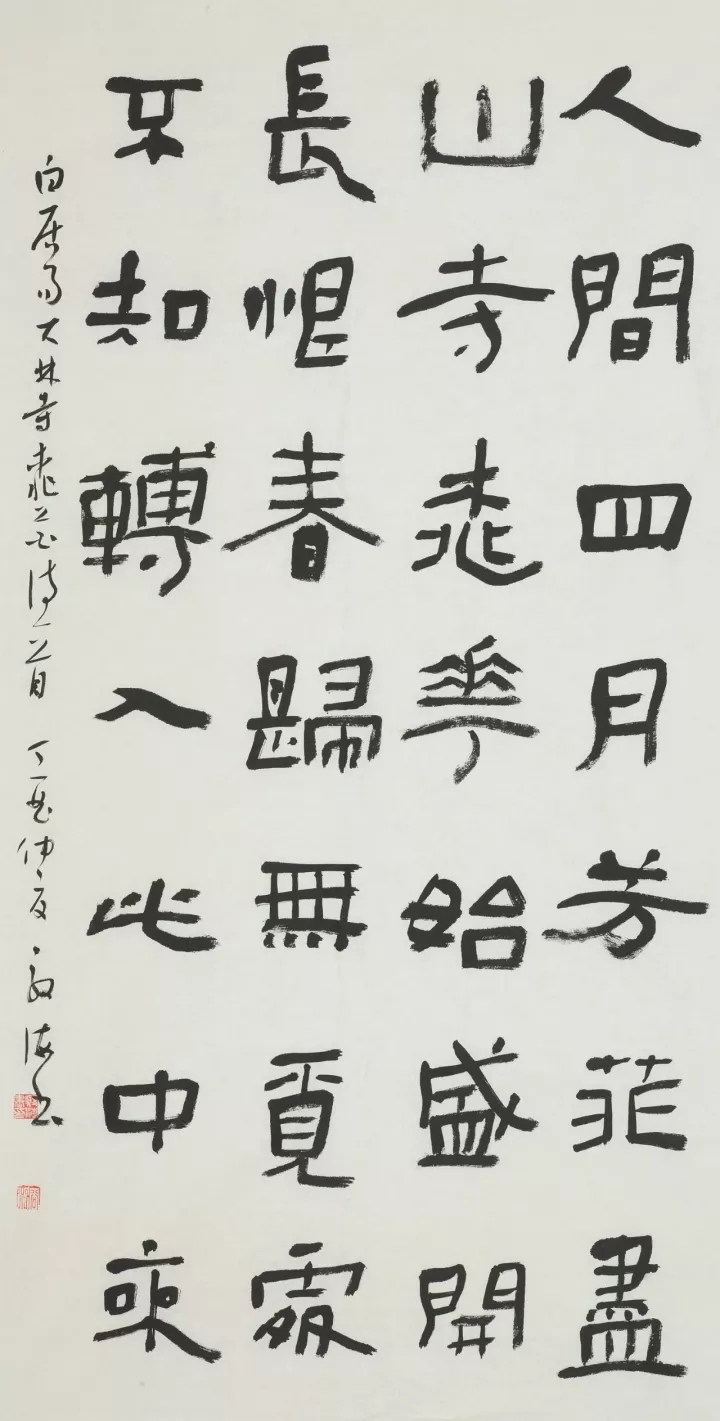 人間四月芳菲盡
山寺桃華始盛開
長恨春歸無覓處
不知轉入此中來
白居易大林寺桃花詩一首 丁酉仲夏 海书